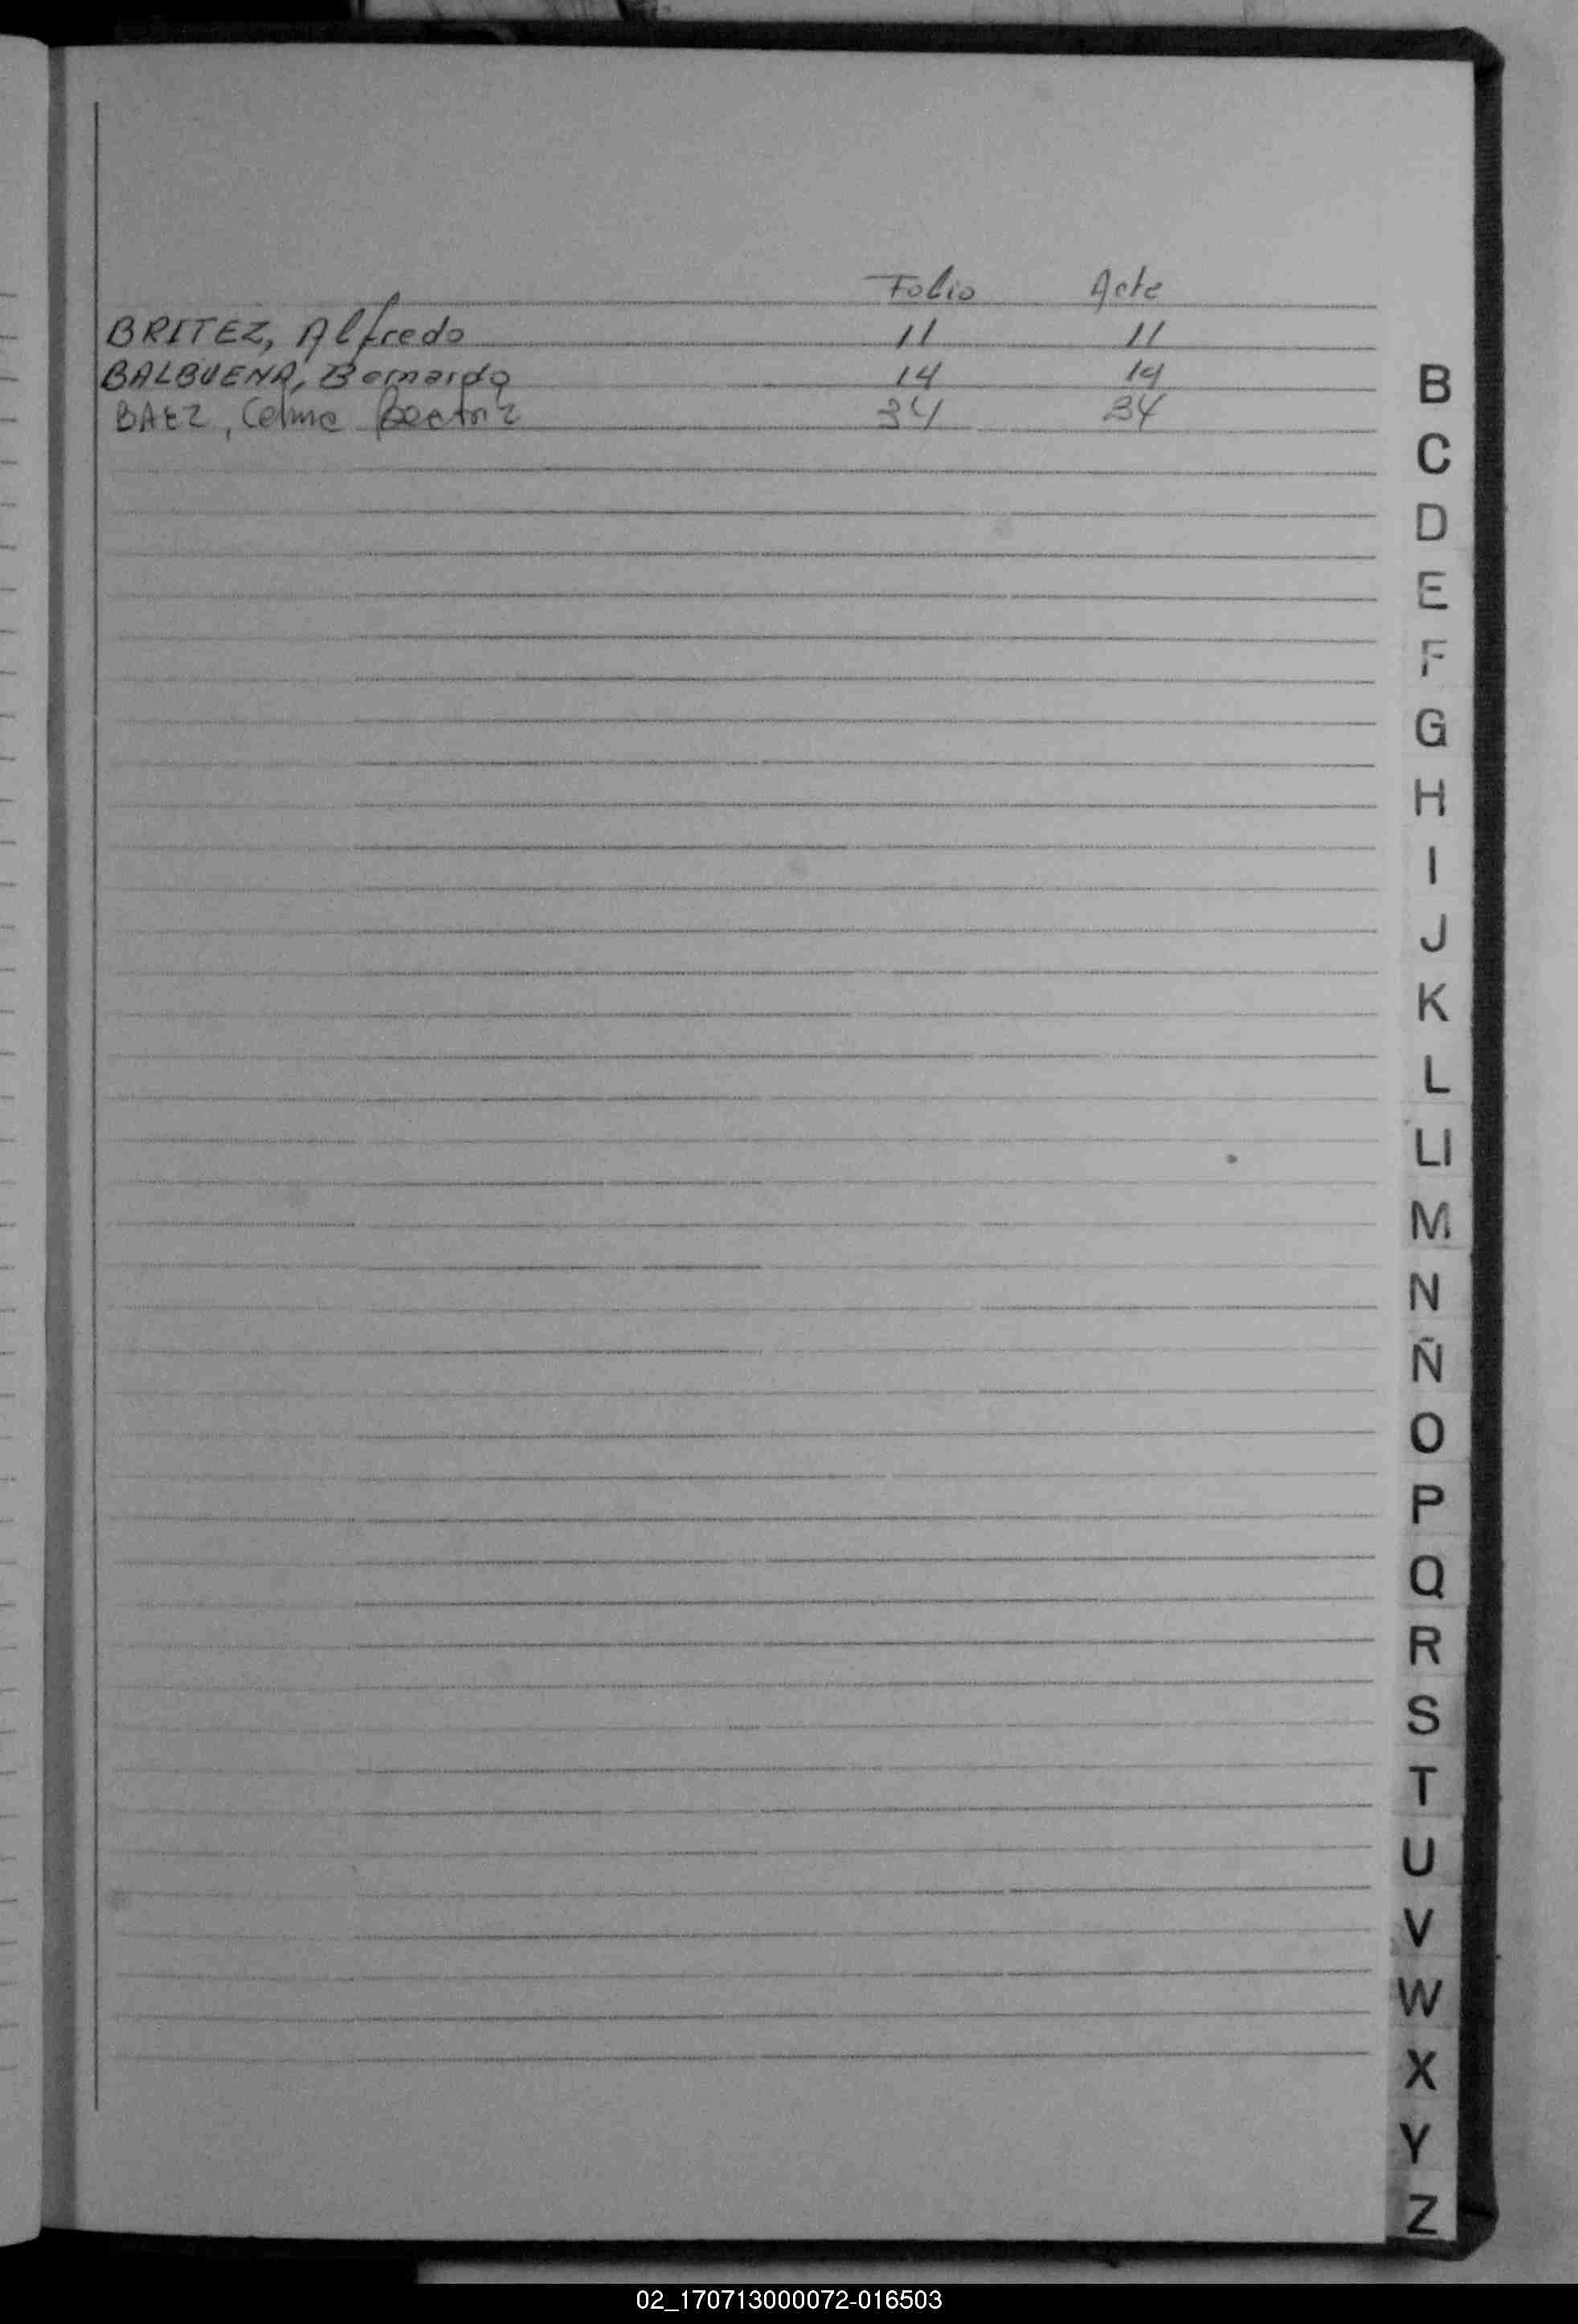 Folio Acta
BRITEZ, Alfredo 11 11
BALBUENA, Bernardo 14 14
BAEZ, Celma Beatriz 34 34
B
C
D
E
F
G
H
I
J
K
L
Ll
M
N
Ñ
O
P
Q
R
S
T
U
V
W
X
Y
Z
02_170713000072-016503